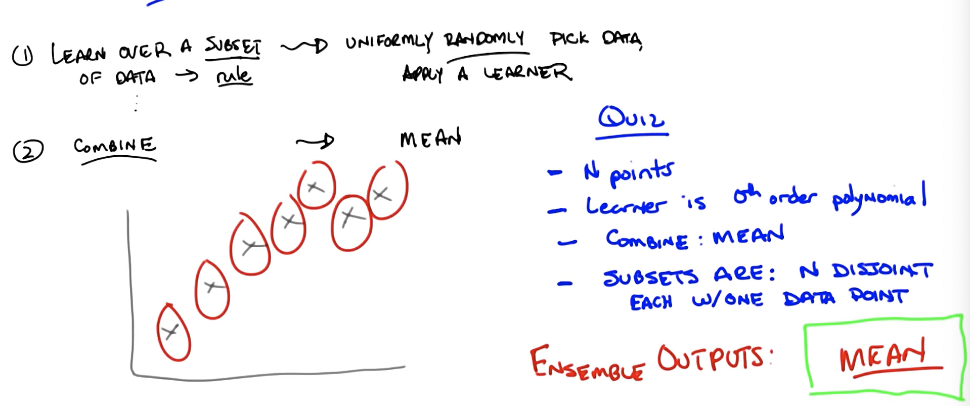 ① LEARN OVER A SUBSET ⟿ UNIFORMLY RANDOMLY PICK DATA,
OF DATA → rule APPLY A LEARNER
② COMBINE → MEAN
QUIZ
- N points
- Learner is 0th order polynomial
- COMBINE: MEAN
- SUBSETS ARE: N DISJOINT
EACH W/ONE DATA POINT
ENSEMBLE OUTPUTS: MEAN